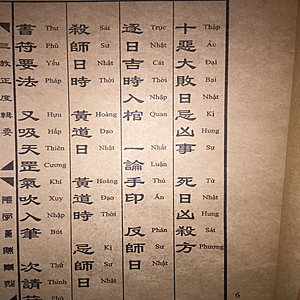 十惡大敗日忌凶事 死日凶殺方
Thập Ác Đại Bại Nhật Kị Hung Sự Tử Nhật Hung Sát Phương
逐日吉時入棺 一論手印 反師日
Trục Nhật Cát Thời Nhập Quan Nhất Luận Thủ Ấn Phản Sư Nhật
殺師日時 黃道日 黃道時 忌師日
Sát Sư Nhật Thời Hoàng Đạo Nhật Hoàng Đạo Thời Kị Sư Nhật
書符要法 又吸天罡氣吹入筆 次請符
Thư Phù Yếu Pháp Hựu Hấp Thiên Cương Khí Xuy Nhập Bút Thứ Thỉnh
三教正度輯要
6